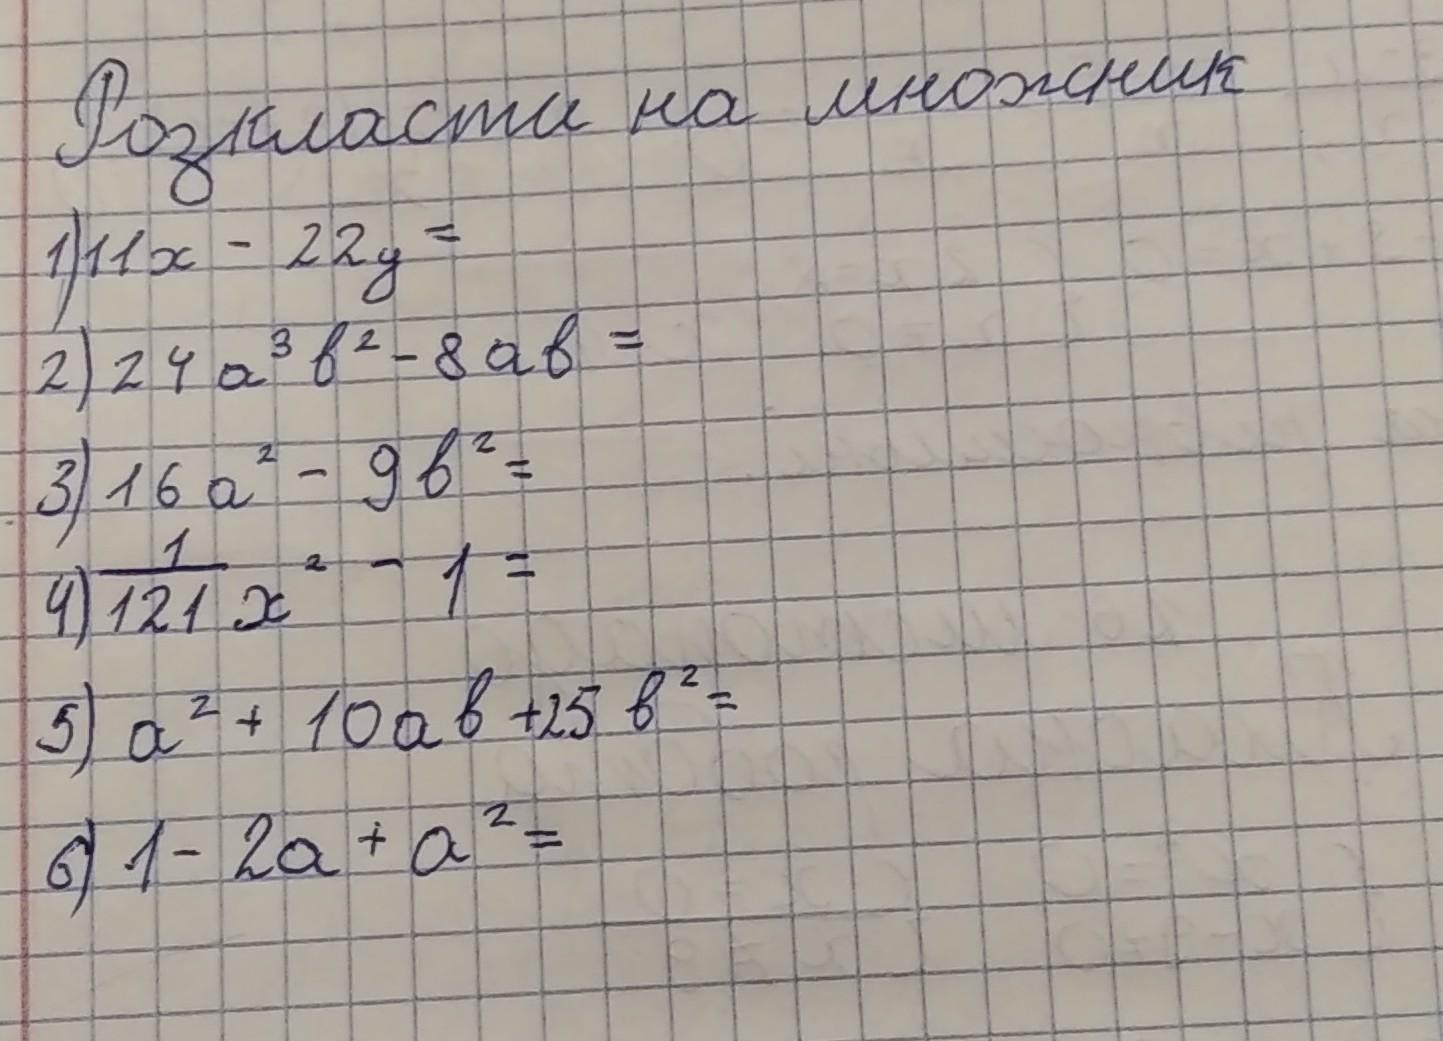 Розкласти на множник
1) 11x - 22y =
2) 24a³b² - 8ab =
3) 16a² - 9b² =
4) 1/121 x² - 1 =
5) a² + 10ab + 25b² =
6) 1 - 2a + a² =